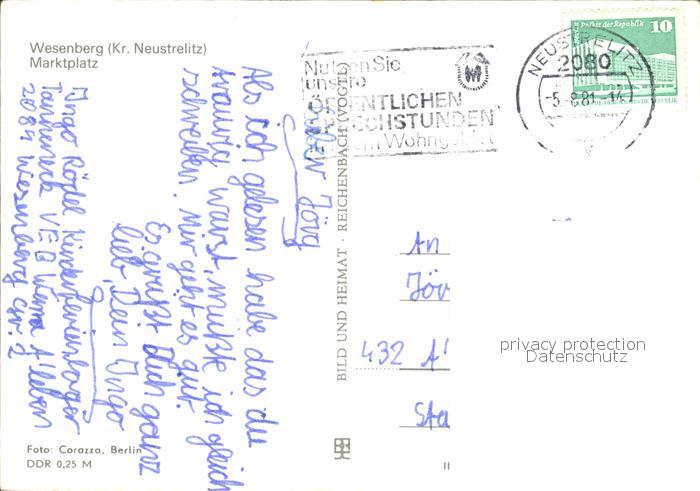 Wesenberg (Kr. Neustrelitz)
Marktplatz
Lieber Jörg
Als ich gelesen habe das du
traurig warst, mußte ich gleich
schreiben. Mir geht es gut.
Es grüßt Dich ganz
lieb, Dein Ingo
Ingo Rödel Kinderferienlager
VEB Wema A'leben
2084 Wesenberg Gr. 2
Foto: Corazza, Berlin
DDR 0,25 M
BILD UND HEIMAT · REICHENBACH (VOGTL)
Nutzen Sie
unsere
ÖFFENTLICHEN
SPRECHSTUNDEN
in Wohngebiet
NEUSTRELITZ
2080
-5.-8.81.-14
Palast der Republik
10
DDR
An
Jör
432 A'
Sta
privacy protection
Datenschutz
II